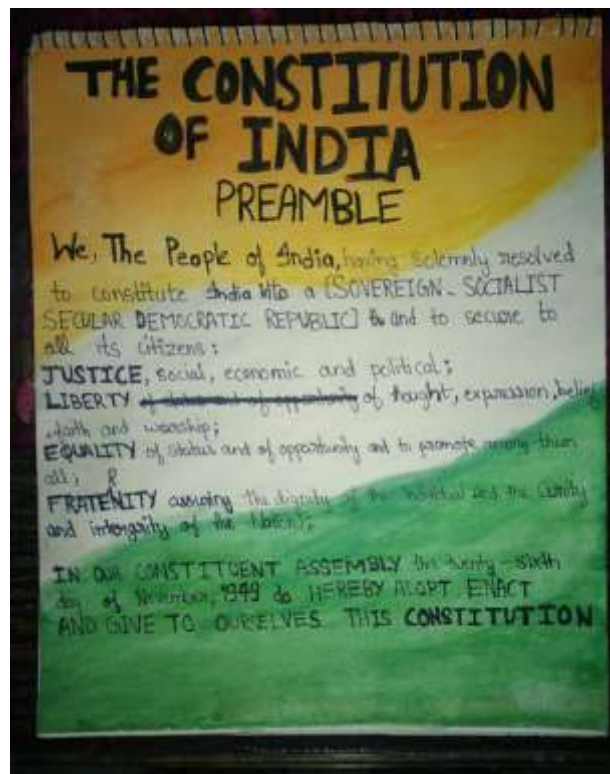 THE CONSTITUTION
OF INDIA
PREAMBLE
We, The People of India, having solemnly resolved
to constitute India into a [SOVEREIGN SOCIALIST
SECULAR DEMOCRATIC REPUBLIC] and to secure to
all its citizens:
JUSTICE, social, economic and political;
LIBERTY of thought, expression, belief
, faith and worship;
EQUALITY of status and of opportunity and to promote among them
all;
FRATENITY assuring the dignity of the individual and the
and of the
IN OUR CONSTITUENT ASSEMBLY this twenty-sixth
day of November, 1949 do HEREBY ADOPT ENACT
AND GIVE TO OURSELVES THIS CONSTITUTION